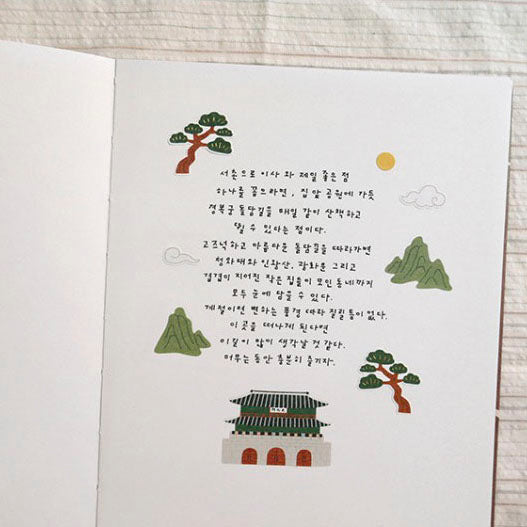 서촌으로 이사 와 제일 좋은 점
하나를 꼽으라면, 집 앞 공원에 가듯
경복궁 돌담길을 매일 같이 산책하고
걸을 수 있다는 점이다.
고즈넉하고 아름다운 돌담길을 따라가면
청와대와 인왕산, 광화문 그리고
겹겹이 지어진 작은 집들이 모인 동네까지
모두 눈에 담을 수 있다.
계절이면 변하는 풍경 따라 질릴 틈이 없다.
이곳을 떠나게 된다면
이 길이 많이 생각날 것 같다.
머무는 동안 충분히 즐기자.